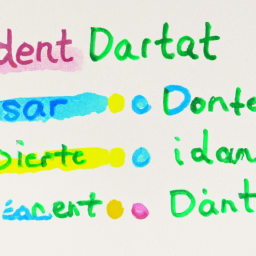 dent Dartat
sar Donte
Dierte idan
éament Dant